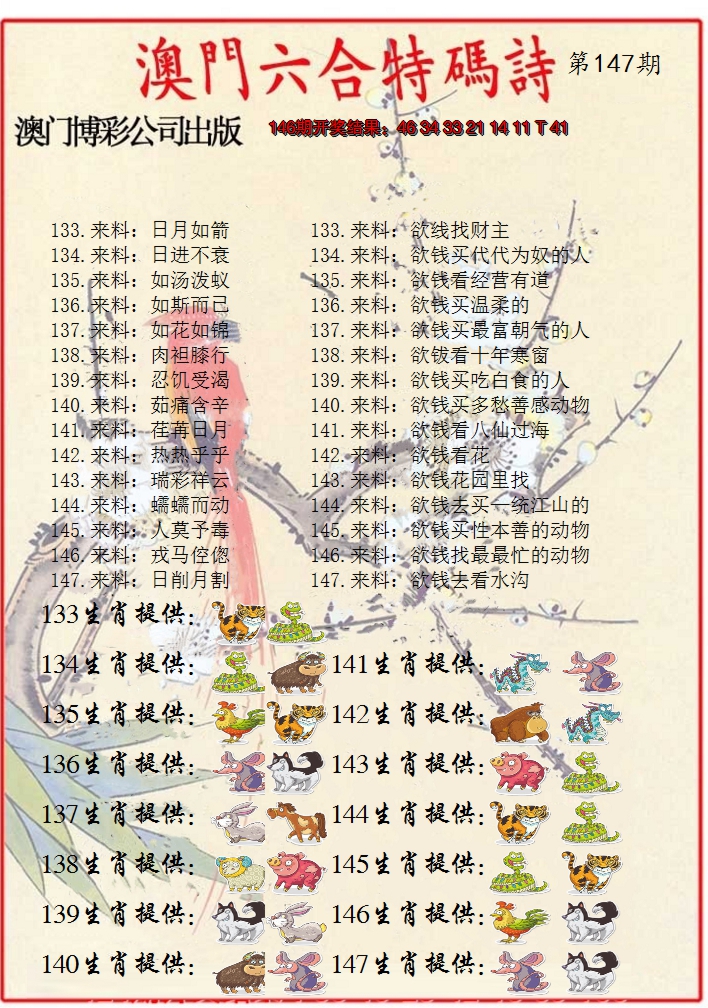 澳門六合特碼詩 第147期
澳门博彩公司出版 146期开奖结果：46 34 33 21 14 11 T 41
133.来料：日月如箭 133.来料：欲线找财主
134.来料：日进不衰 134.来料：欲钱买代代为奴的人
135.来料：如汤泼蚁 135.来料：欲钱看经营有道
136.来料：如斯而已 136.来料：欲钱买温柔的
137.来料：如花如锦 137.来料：欲钱买最富朝气的人
138.来料：肉袒膝行 138.来料：欲钹看十年寒窗
139.来料：忍饥受渴 139.来料：欲钱买吃白食的人
140.来料：茹痛含辛 140.来料：欲钱买多愁善感动物
141.来料：荏苒日月 141.来料：欲钱看八仙过海
142.来料：热热乎乎 142.来料：欲钱看花
143.来料：瑞彩祥云 143.来料：欲钱花园里找
144.来料：蠕蠕而动 144.来料：欲钱去买一统江山的
145.来料：人莫予毒 145.来料：欲钱买性本善的动物
146.来料：戎马倥偬 146.来料：欲钱找最最忙的动物
147.来料：日削月割 147.来料：欲钱去看水沟
133生肖提供：
134生肖提供： 141生肖提供：
135生肖提供： 142生肖提供：
136生肖提供： 143生肖提供：
137生肖提供： 144生肖提供：
138生肖提供： 145生肖提供：
139生肖提供： 146生肖提供：
140生肖提供： 147生肖提供：